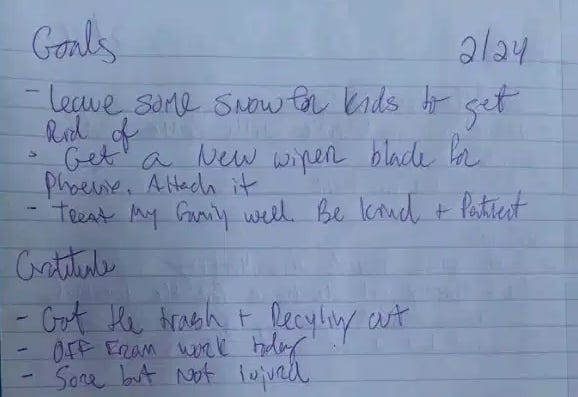 Goals 2/24
- Leave some snow for kids to get
Rid of
- Get a New wiper blade for
Phoenix. Attach it
- Treat My family well. Be kind + Patient
Gratitude
- Got the trash + Recycling out
- Off From work today
- Sore but Not injured